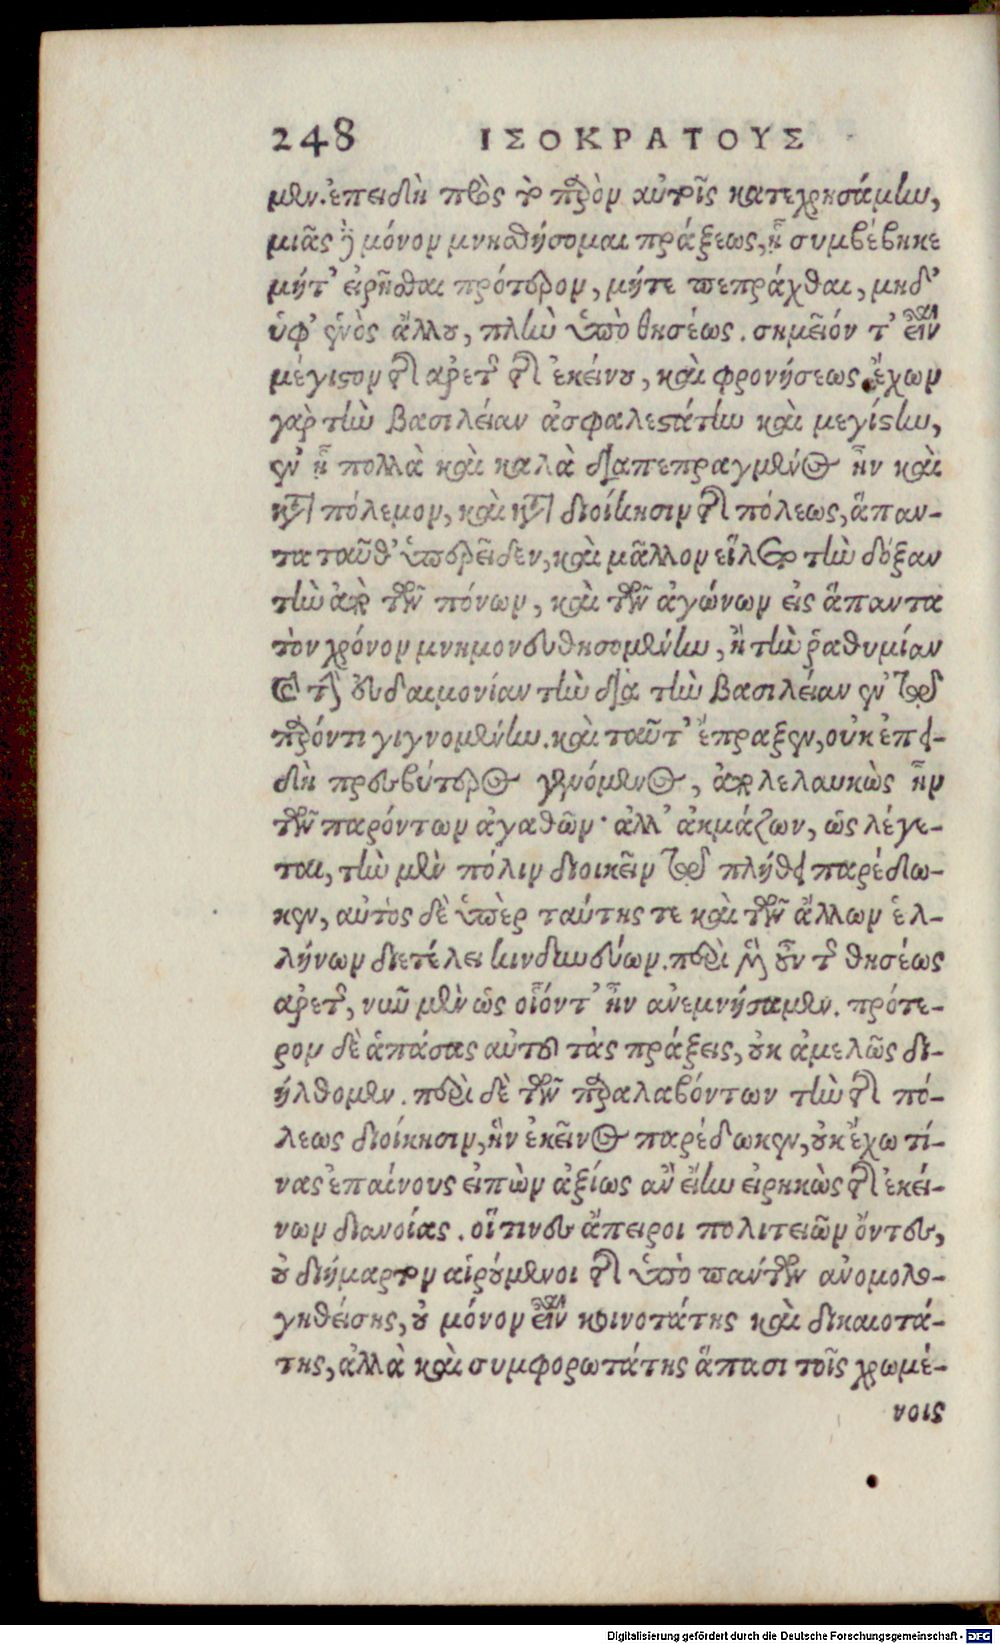 248 ΙΣΟΚΡΑΤΟΥΣ
μεν. ἐπειδὴ πρὸς τὸ παρὸν αὐτοῖς κατεχρησάμην,
μιᾶς δὲ μόνον μνησθήσομαι πράξεως, ᾗ συμβέβηκε
μήτ' εἰρῆσθαι πρότερον, μήτε πεπράχθαι, μηδ'
ὑφ' ἑνὸς ἄλλου, πλὴν ὑπὸ θησέως. σημεῖόν τ' εἶναι
μέγιστον τῆς ἀρετῆς τῆς ἐκείνου, καὶ φρονήσεως. ἔχων
γὰρ τὴν βασιλείαν ἀσφαλεστάτην καὶ μεγίστην,
ἐν ᾗ πολλὰ καὶ καλὰ διαπεπραγμένος ἦν καὶ
κατὰ πόλεμον, καὶ κατὰ διοίκησιν τῆς πόλεως, ἅπαν-
τα ταῦθ' ὑπερεῖδεν, καὶ μᾶλλον εἵλετο τὴν δόξαν
τὴν ἀπὸ τῶν πόνων, καὶ τῶν ἀγώνων εἰς ἅπαντα
τὸν χρόνον μνημονευθησομένην, ἢ τὴν ῥαθυμίαν
καὶ τὴν εὐδαιμονίαν τὴν διὰ τὴν βασιλείαν ἐν τῷ
παρόντι γιγνομένην. καὶ ταῦτ' ἔπραξεν, οὐκ ἐπει-
δὴ πρεσβύτερος γενόμενος, ἀπολελαυκὼς ἦν
τῶν παρόντων ἀγαθῶν· ἀλλ' ἀκμάζων, ὡς λέγε-
ται, τὴν μὲν πόλιν διοικεῖν τῷ πλήθει παρέδω-
κεν, αὐτὸς δὲ ὑπὲρ ταύτης τε καὶ τῶν ἄλλων ἑλ-
λήνων διετέλει κινδυνεύων. περὶ μὲν οὖν τῆς θησέως
ἀρετῆς, νῦν μὲν ὡς οἷόντ' ἦν ἀνεμνήσαμεν. πρότε-
ρον δὲ ἁπάσας αὐτοῦ τὰς πράξεις, οὐκ ἀμελῶς δι-
ήλθομεν. περὶ δὲ τῶν παραλαβόντων τὴν τῆς πό-
λεως διοίκησιν, ἣν ἐκεῖνος παρέδωκεν, οὐκ ἔχω τί-
νας ἐπαίνους εἰπὼν ἀξίως ἂν εἴην εἰρηκὼς τῆς ἐκεί-
νων διανοίας. οἵτινες ἄπειροι πολιτειῶν ὄντες,
οὐ διήμαρτον αἱρούμενοι τῆς ὑπὸ πάντων ἀνομολο-
γηθείσης, οὐ μόνον εἶναι κοινοτάτης καὶ δικαιοτά-
της, ἀλλὰ καὶ συμφορωτάτης ἅπασι τοῖς χρωμέ-
νοις
Digitalisierung gefördert durch die Deutsche Forschungsgemeinschaft - DFG